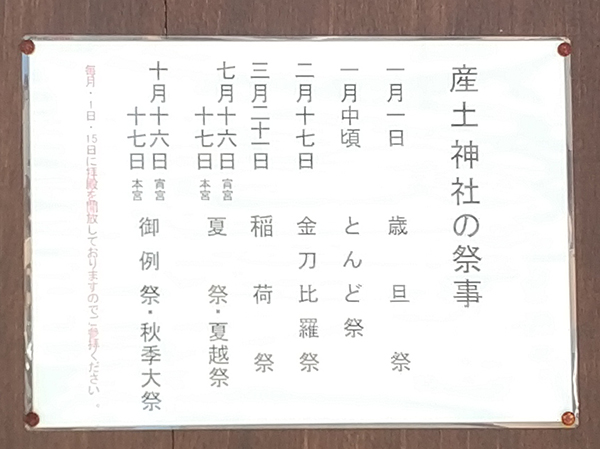 産土神社の祭事
一月一日 歳旦祭
一月中頃 とんど祭
二月十七日 金刀比羅祭
三月二十一日 稲荷祭
七月十六日 宵宮
十七日 本宮 夏祭・夏越祭
十月十六日 宵宮
十七日 本宮 御例祭・秋季大祭
毎月・1日・15日に拝殿を開放しておりますのでご参拝ください。